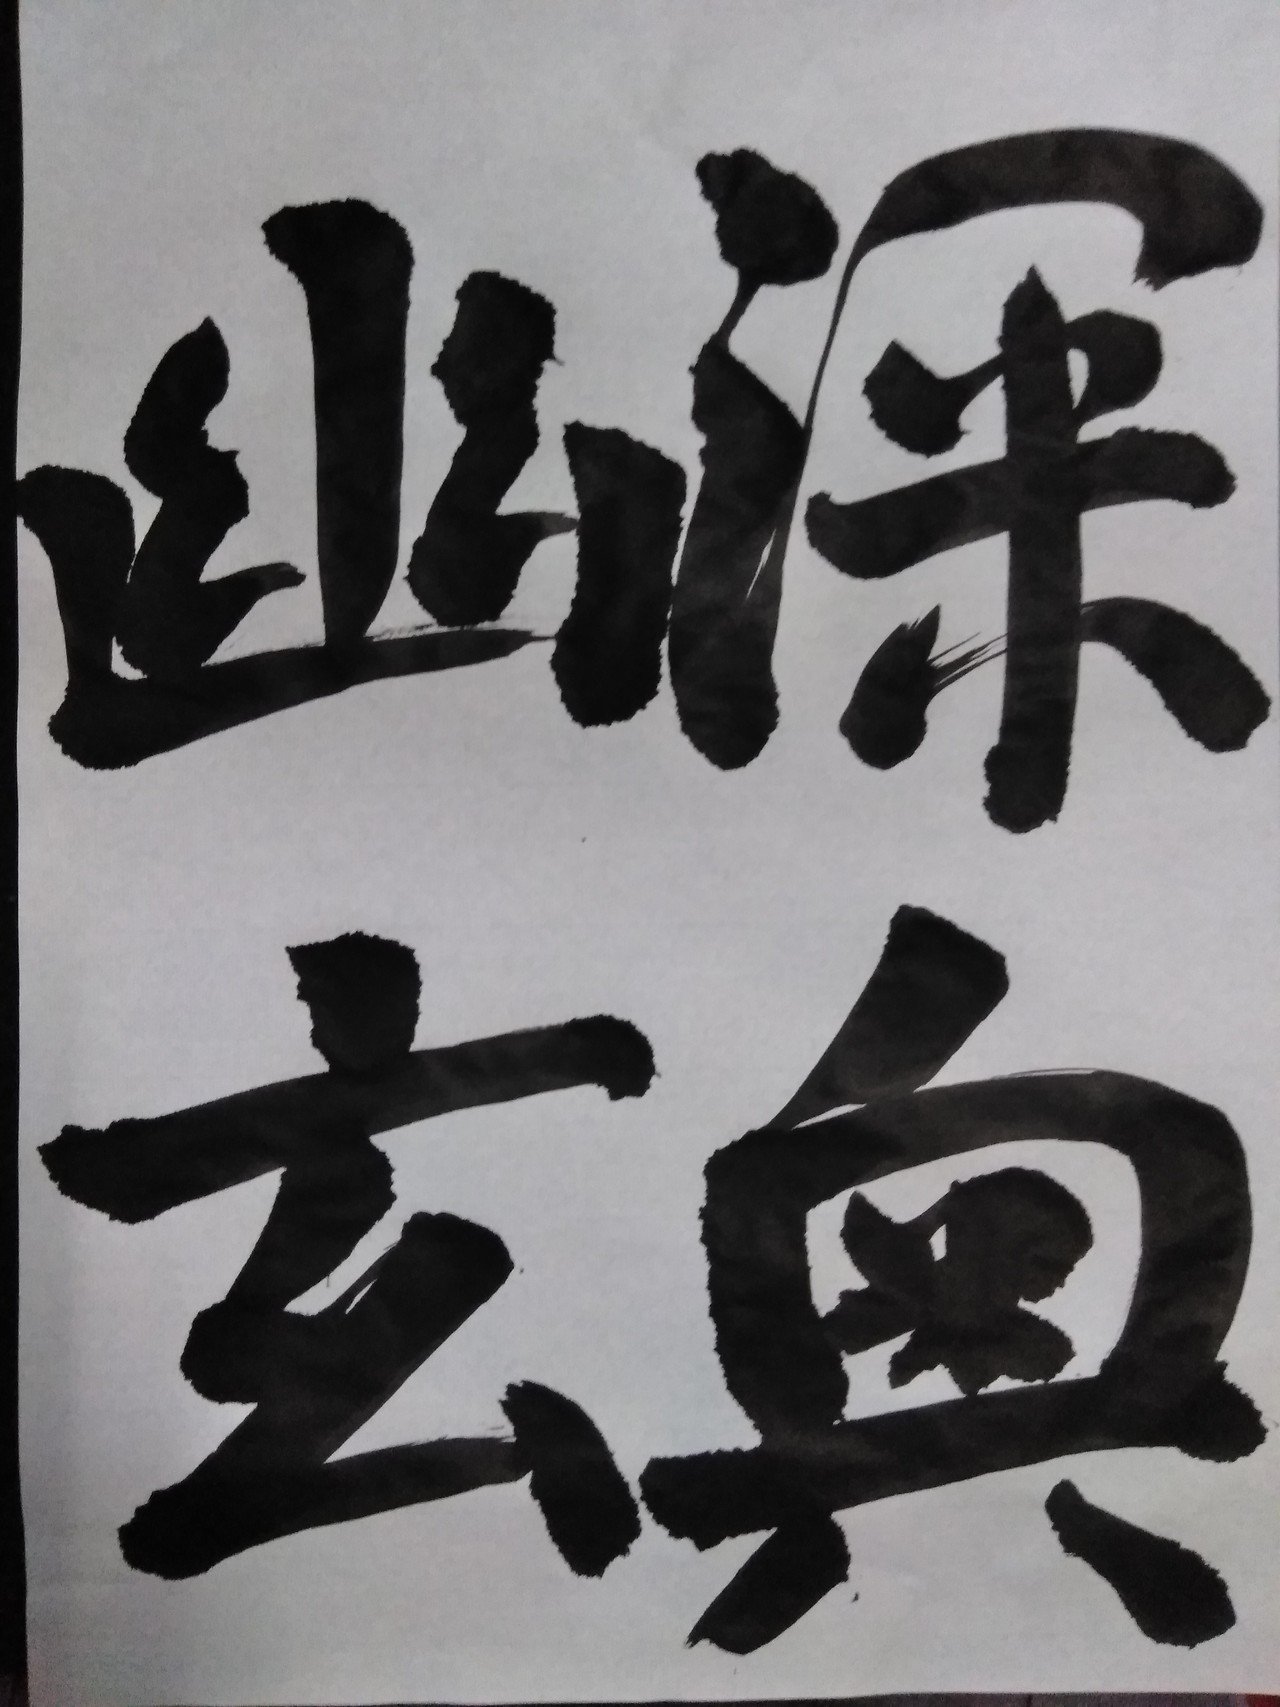 深奥
幽玄